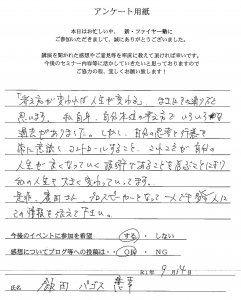 アンケート用紙
本日はお忙しい中、 新・ファイヤー塾に
ご参加いただきまして、誠にありがとうございました。
講演を聞かれた感想やご意見等を率直に教えて頂ければ幸いです。
今後のセミナー内容等に活かしていきたいと思っておりますので
ご協力の程、宜しくお願い致します！
「考え方が変われば人生が変わる」まさにその通りだと
思います。 私自身、自分本位の考え方で いろいろ
過去がありました。しかし、自分の思考と行動で
常に意識しコントロールすること、これこそが自分の
人生が良くなっていく 秘訣であることを学ぶことにより
私の人生も大きく変わっています。
この情報を伝えて下さい。
今後のイベントに参加を希望 する ・ しない
感想についてブログ等への投稿は・・ OK ・ NG
R1年 9月14日
氏名 飯田